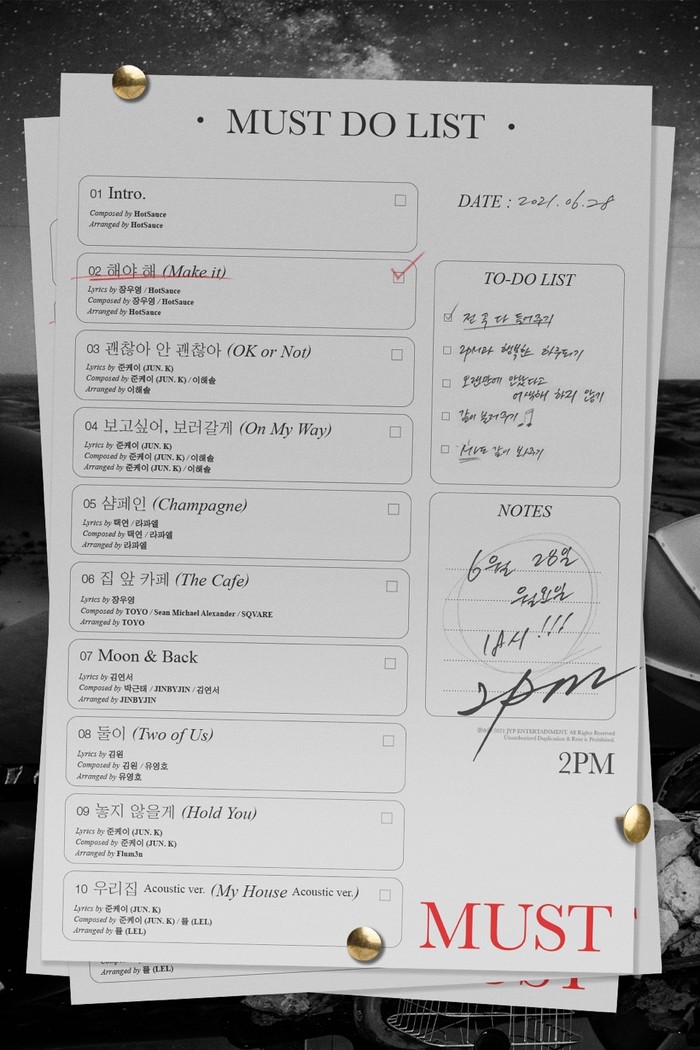 · MUST DO LIST ·
01 Intro.
Composed by HotSauce
Arranged by HotSauce
02 해야 해 (Make it)
Lyrics by 장우영 / HotSauce
Composed by 장우영 / HotSauce
Arranged by HotSauce
03 괜찮아 안 괜찮아 (OK or Not)
Lyrics by 준케이 (JUN. K)
Composed by 준케이 (JUN. K) / 이해솔
Arranged by 이해솔
04 보고싶어, 보러갈게 (On My Way)
Lyrics by 준케이 (JUN. K)
Composed by 준케이 (JUN. K) / 이해솔
Arranged by 준케이 (JUN. K) / 이해솔
05 샴페인 (Champagne)
Lyrics by 택연 / 라파엘
Composed by 택연 / 라파엘
Arranged by 라파엘
06 집 앞 카페 (The Cafe)
Lyrics by 장우영
Composed by TOYO / Sean Michael Alexander / SQVARE
Arranged by TOYO
07 Moon & Back
Lyrics by 김연서
Composed by 박근태 / JINBYJIN / 김연서
Arranged by JINBYJIN
08 둘이 (Two of Us)
Lyrics by 김원
Composed by 김원 / 유영호
Arranged by 유영호
09 놓지 않을게 (Hold You)
Lyrics by 준케이 (JUN. K)
Composed by 준케이 (JUN. K)
Arranged by Flum3n
10 우리집 Acoustic ver. (My House Acoustic ver.)
Lyrics by 준케이 (JUN. K)
Composed by 준케이 (JUN. K) / 뜰 (LEL)
Arranged by 뜰 (LEL)
Arranged by 뜰 (LEL)
DATE : 2021.06.28
TO-DO LIST
전 곡 다 들어주기
2PM과 행복한 하루되기
오랜만에 만났다고
어색해 하지 않기
같이 불러주기
같이 봐주기
NOTES
6월 28일
월요일
!!!
2pm
2021 JYP ENTERTAINMENT. All Rights Reserved
Unauthorized Duplication & Rent is Prohibited.
2PM
MUST